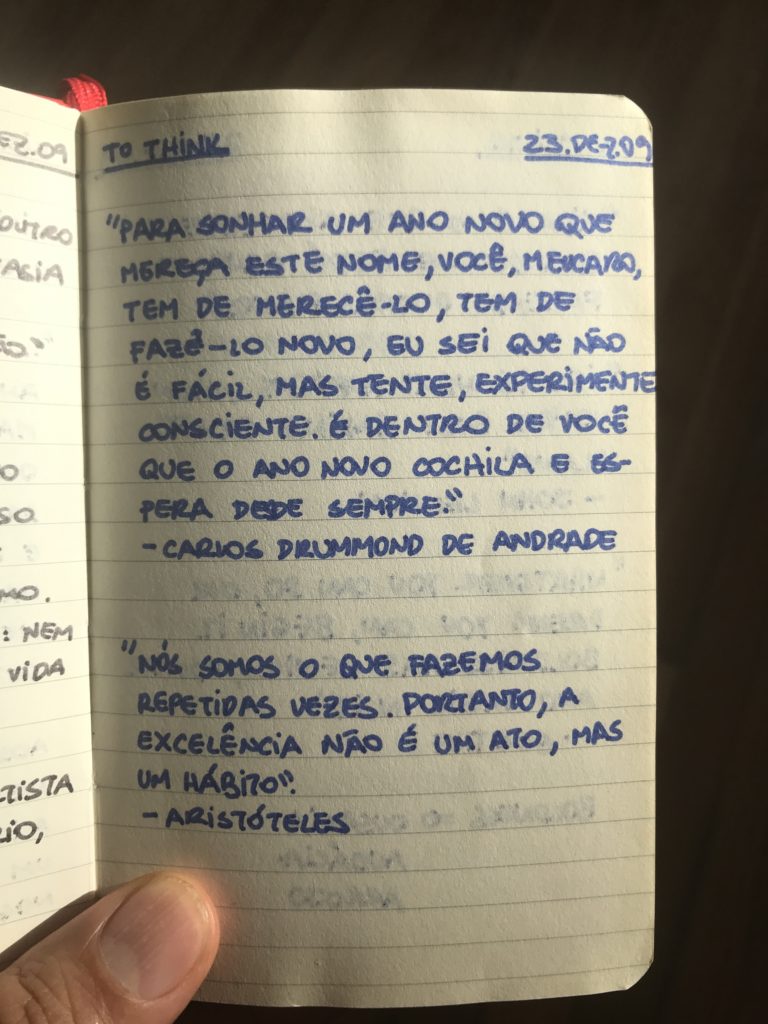 EZ.09
OUTRO
TASIA
SO
MO.
: NEM
VIDA
TISTA
RIO,
TO THINK
23.DEZ.09
"PARA SONHAR UM ANO NOVO QUE
MEREÇA ESTE NOME, VOCÊ, MEU CARO,
TEM DE MERECÊ-LO, TEM DE
FAZÊ-LO NOVO, EU SEI QUE NÃO
É FÁCIL, MAS TENTE, EXPERIMENTE
CONSCIENTE. É DENTRO DE VOCÊ
QUE O ANO NOVO COCHILA E ES-
PERA DEDE SEMPRE."
- CARLOS DRUMMOND DE ANDRADE
"NÓS SOMOS O QUE FAZEMOS
REPETIDAS VEZES. PORTANTO, A
EXCELÊNCIA NÃO É UM ATO, MAS
UM HÁBITO".
- ARISTÓTELES